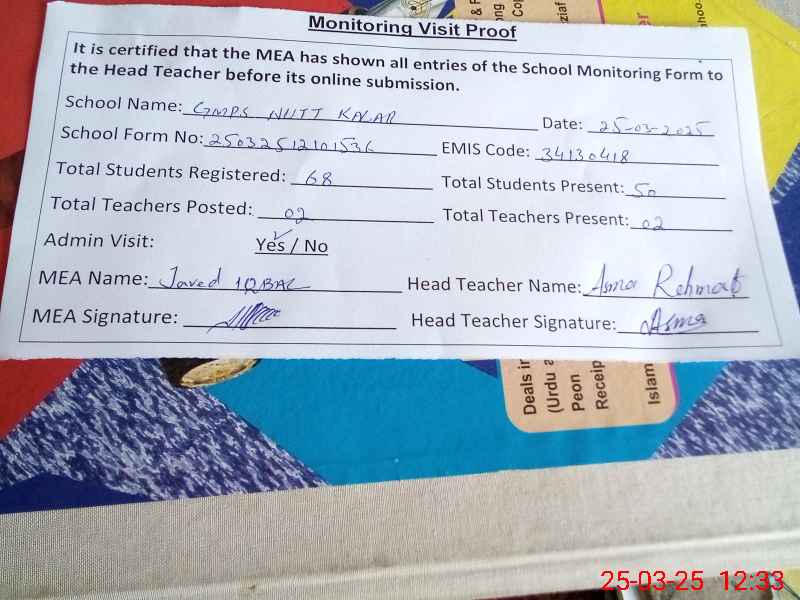 Monitoring Visit Proof
It is certified that the MEA has shown all entries of the School Monitoring Form to
the Head Teacher before its online submission.
School Name: GMPS NUTT KALAR Date: 25-03-2025
School Form No: 25032512101536 EMIS Code: 34130418
Total Students Registered: 68 Total Students Present: 50
Total Teachers Posted: 02 Total Teachers Present: 02
Admin Visit: Yes / No
MEA Name: Javed IQBAL Head Teacher Name: Asma Rehmat
MEA Signature: Head Teacher Signature: Asma
Deals in
(Urdu
Peon
Receip
Islam
25-03-25 12:33